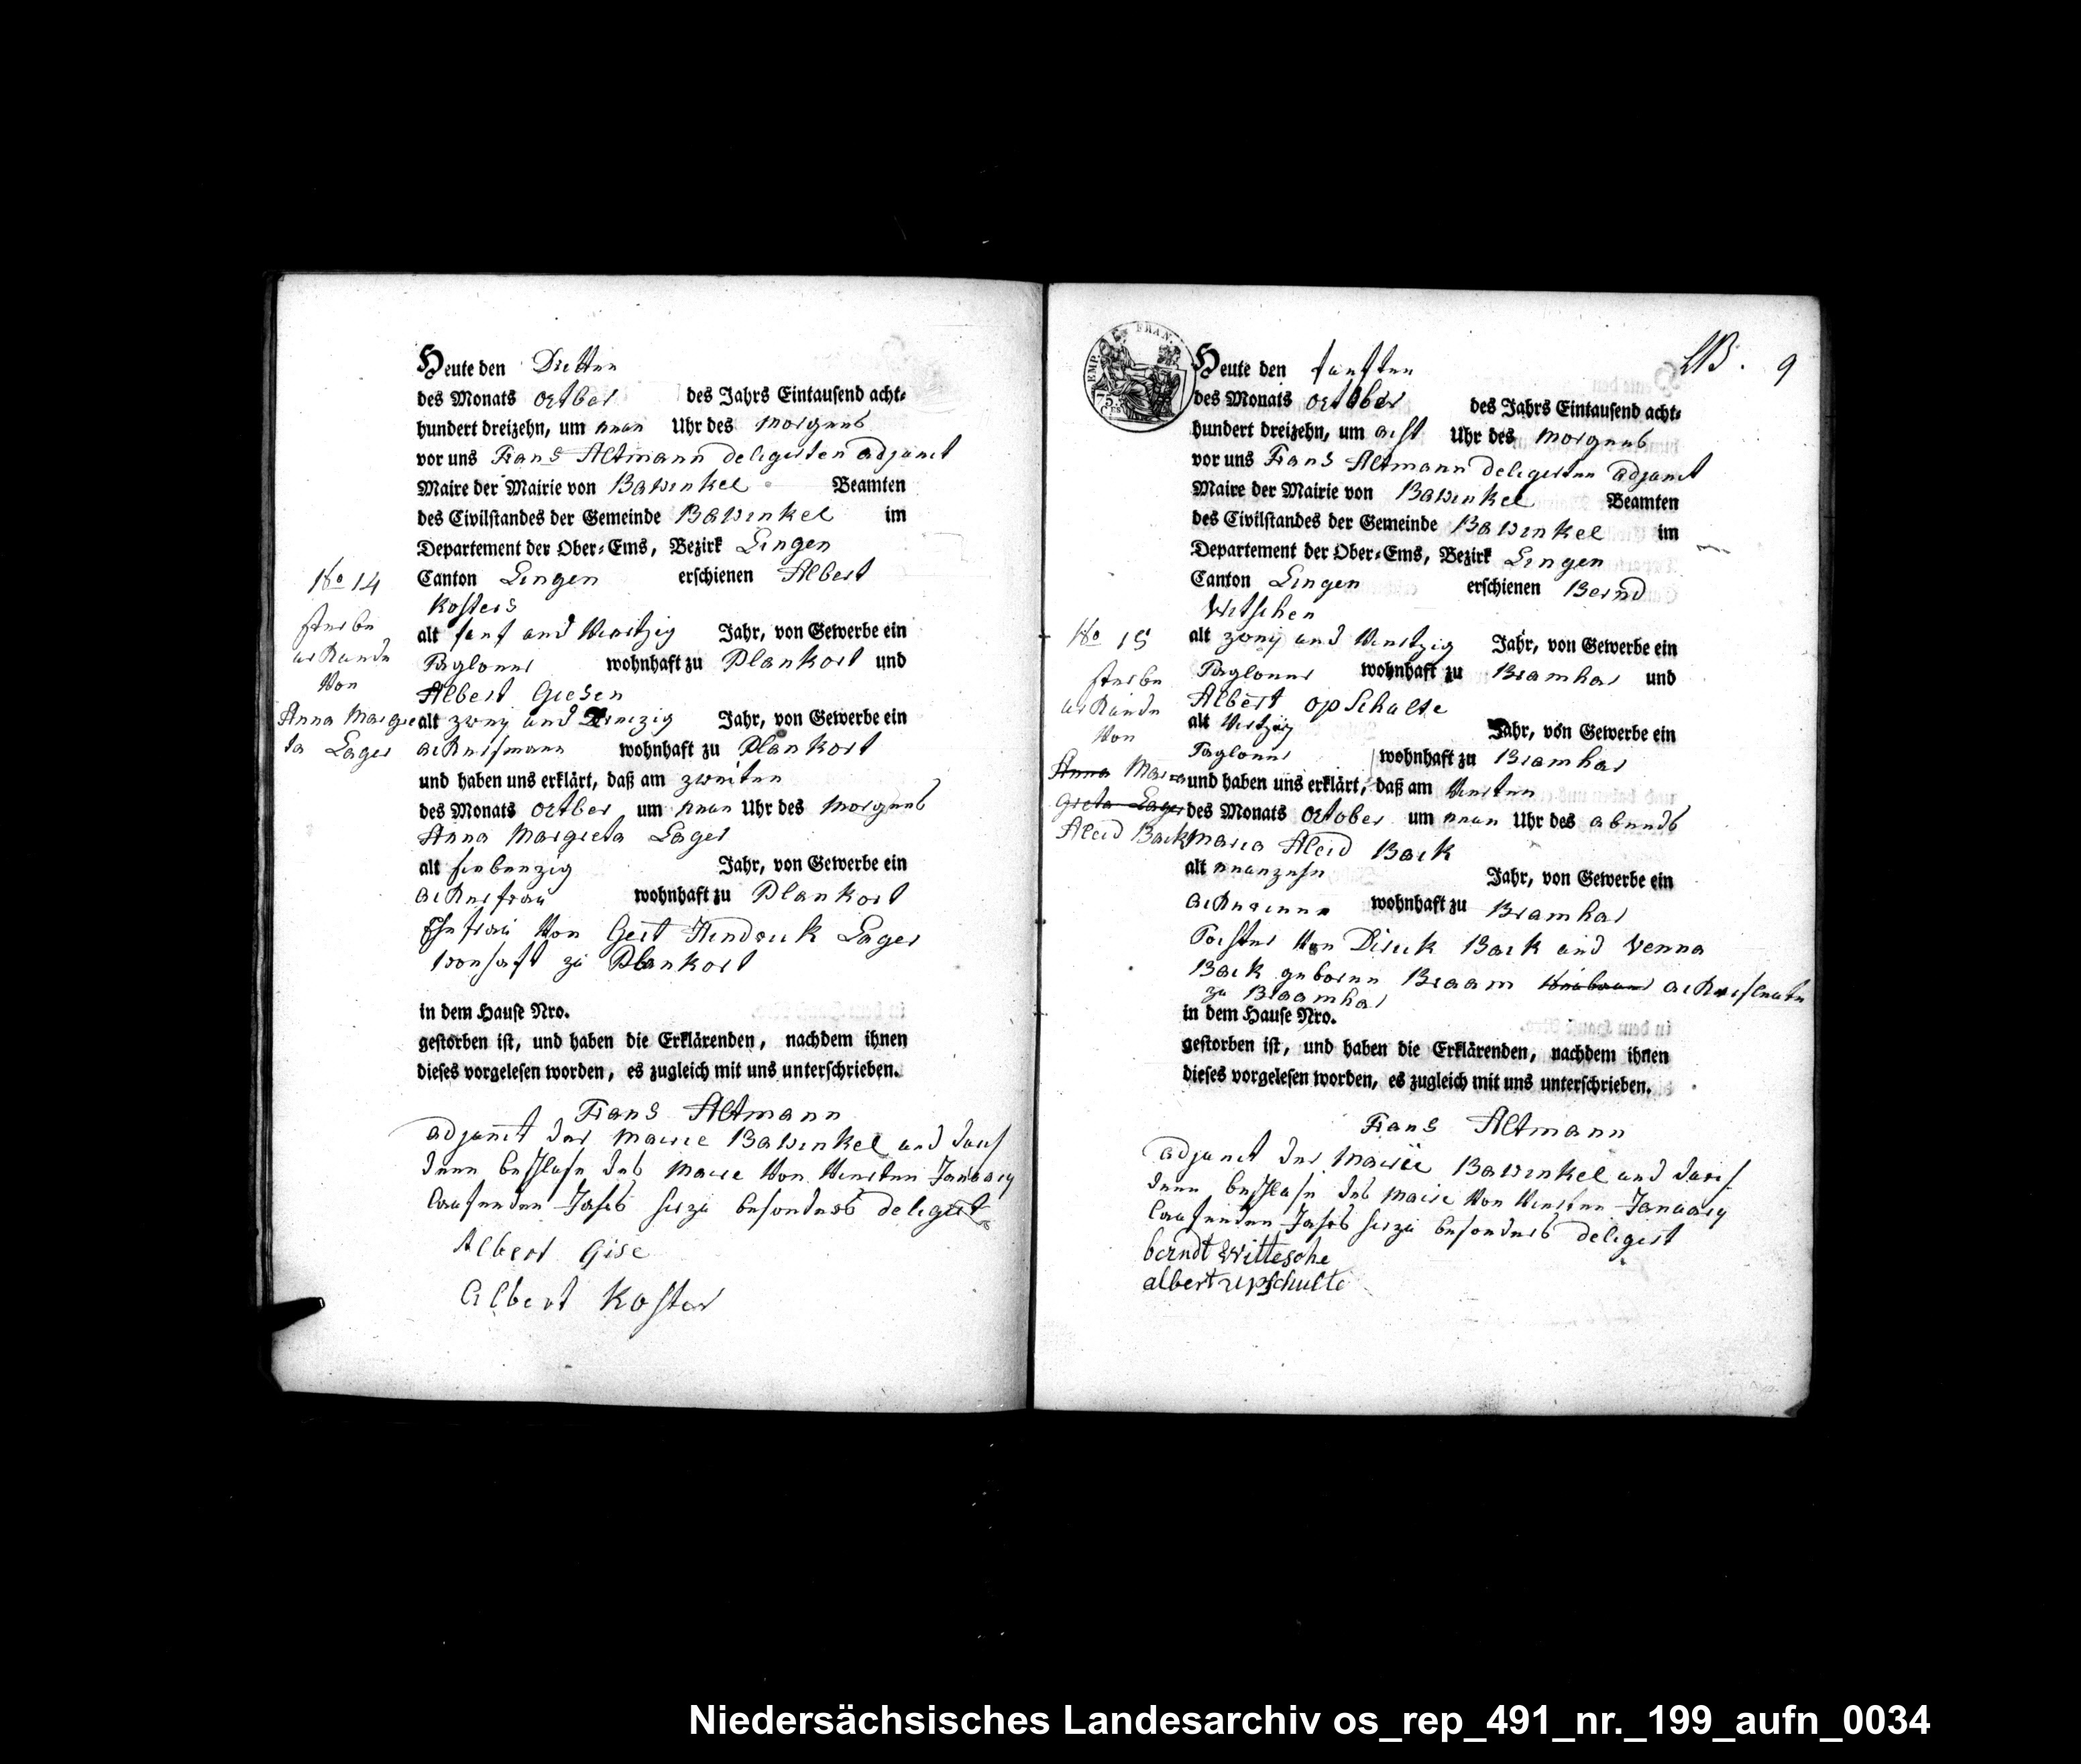 Heute den Dritten
des Monats October des Jahrs Eintausend acht-
hundert dreizehn, um neun Uhr des Morgens
vor uns Frans Altmann delegirten adjunct
Maire der Mairie von Bawinkel Beamten
des Civilstandes der Gemeinde Bawinkel im
Departement der Ober-Ems, Bezirk Lingen
Canton Lingen erschienen Albert
Kosters
alt fünf und Viertzig Jahr, von Gewerbe ein
Taglöner wohnhaft zu Plankort und
Albert Giesen
alt zwey und Jahr, von Gewerbe ein
ackersmann wohnhaft zu Plankort
und haben uns erklärt, daß am zweiten
des Monats October um neun Uhr des Morgens
Anna Margreta Lager
alt siebenzig Jahr, von Gewerbe ein
ackersfrau wohnhaft zu Plankort
Ehefrau Von Gert Hendrick Lager
wonhaft zu Plankort
in dem Hause Nro.
gestorben ist, und haben die Erklärenden, nachdem ihnen
dieses vorgelesen worden, es zugleich mit uns unterschrieben.
Frans Altmann
adjunct der Mairie Bawinkel und durch
denn beschluse des Maire Von Viersten January
laufenden Jahrs hirzu besonders delegirt
Albert Gise
Albert Koster
No 14
sterbe
urkunde
Von
Anna Margre
ta Lager
LB. 9
EMP. FRAN.
75.
CES
Heute den fünften
des Monats October des Jahrs Eintausend acht-
hundert dreizehn, um acht Uhr des Morgens
vor uns Frans Altmann delegirten adjunct
Maire der Mairie von Bawinkel Beamten
des Civilstandes der Gemeinde Bawinkel im
Departement der Ober-Ems, Bezirk Lingen
Canton Lingen erschienen Bernd
Wetschen
alt zwey und Viertzig Jahr, von Gewerbe ein
Taglöner wohnhaft zu Bramhar und
Albert opSchulte
alt Viertzig Jahr, von Gewerbe ein
Taglöner wohnhaft zu Bramhar
und haben uns erklärt, daß am Viersten
des Monats October um neun Uhr des abends
Maria Aleid Back
alt neunzehn Jahr, von Gewerbe ein
ackererinne wohnhaft zu Bramhar
Tochter Von Dirck Back und Venna
Back geborne Braam ackersleute
zu Braamhar
in dem Hause Nro.
gestorben ist, und haben die Erklärenden, nachdem ihnen
dieses vorgelesen worden, es zugleich mit uns unterschrieben.
Frans Altmann
adjunct der Mairie Bawinkel und durch
denn beschluse des Maire Von Viersten January
laufenden Jahrs hirzu besonders delegirt
berndt Wittesche
albert upschulte
No 15
sterbe
urkunde
Von
Anna Maria
Greta Lager
Aleid Back
Niedersächsisches Landesarchiv os_rep_491_nr._199_aufn_0034